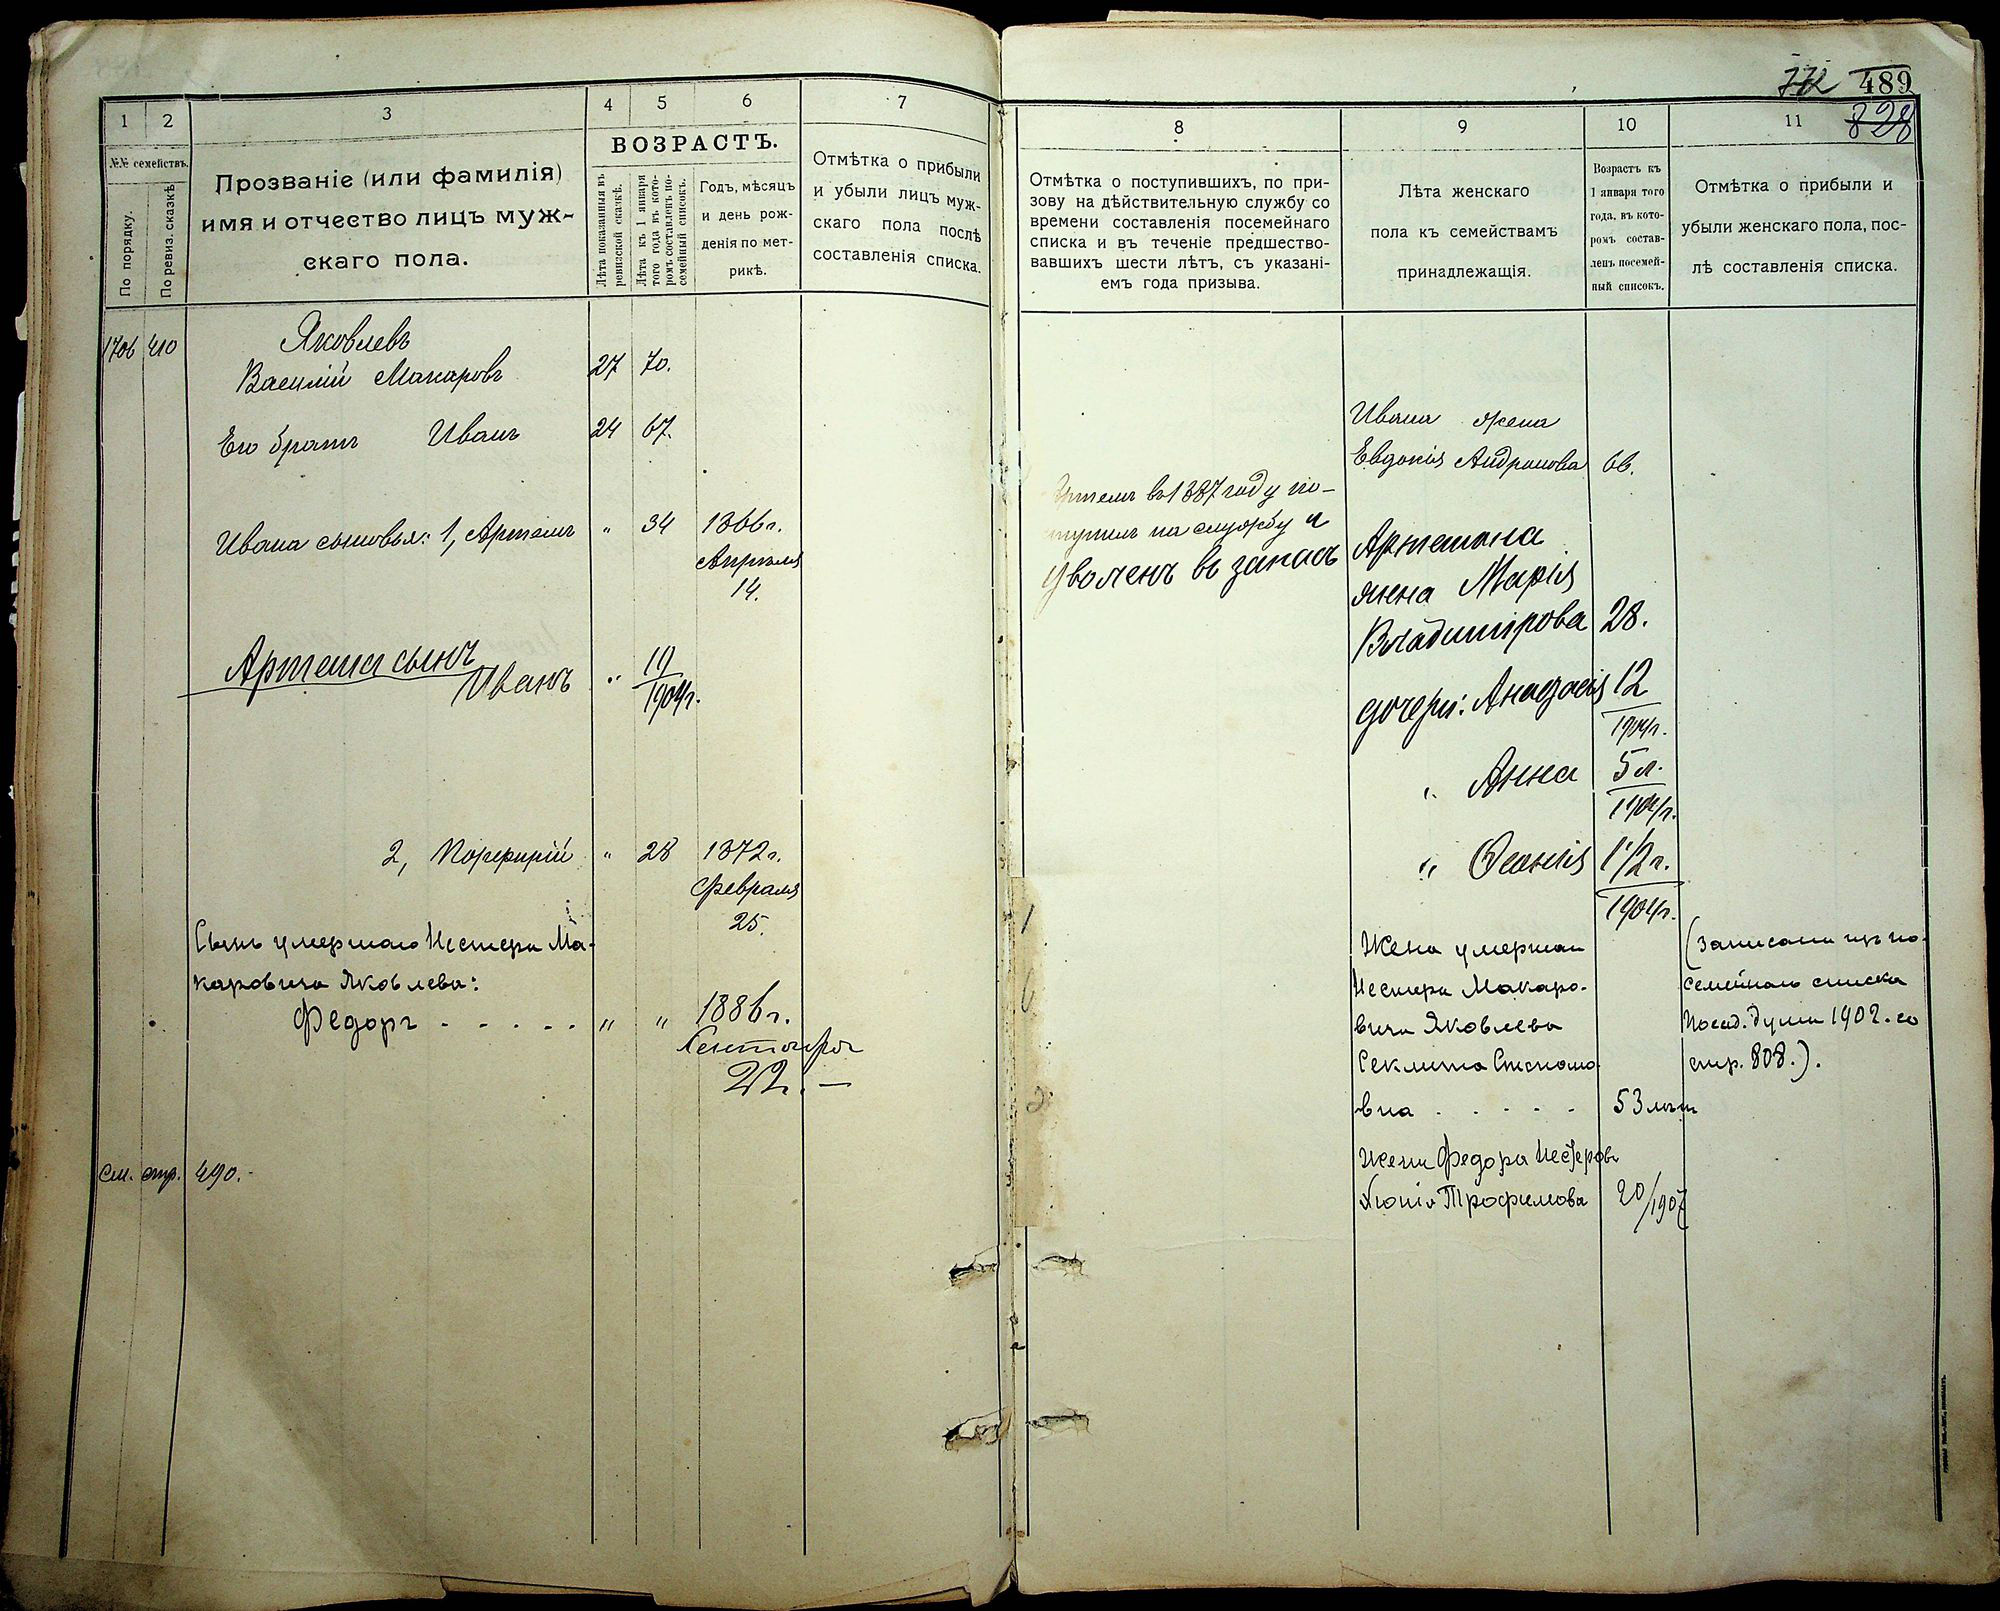 1
2
3
4
5
6
7
№№ семействъ.
По порядку.
По ревиз. сказкѣ
Прозваніе (или фамилія)
имя и отчество лицъ муж-
скаго пола.
ВОЗРАСТЪ.
Лѣта показанныя въ
ревизской сказкѣ.
Лѣта къ 1 января
того года въ кото-
ромъ составленъ по-
семейный списокъ.
Годъ, мѣсяцъ
и день рож-
денія по мет-
рикѣ.
Отмѣтка о прибыли
и убыли лицъ муж-
скаго пола послѣ
составленія списка.
1706 410
Яковлевъ
Василій Макаровъ 27 70.
Его братъ Иванъ 24 67.
Ивана сыновья: 1, Артемъ " 34 1866 г.
Апрѣля
14.
Артема сынъ
Иванъ "
1904 г.
2, Порфирій " 28 1872 г.
Февраля
25.
Сынъ умершаго Нестера Ма-
каровича Яковлева:
Федоръ - - - - - " " 1886 г.
Сентября
22. —
См. стр. 490.-
772 489
828
8
9
10
11
Отмѣтка о поступившихъ, по при-
зову на дѣйствительную службу со
времени составленія посемейнаго
списка и въ теченіе предшество-
вавшихъ шести лѣтъ, съ указані-
емъ года призыва.
Лѣта женскаго
пола къ семействамъ
принадлежащія.
Возрастъ къ
1 января того
года, въ кото-
ромъ состав-
ленъ посемей-
ный списокъ.
Отмѣтка о прибыли и
убыли женскаго пола, пос-
лѣ составленія списка.
Ивана жена
Евдокія Андронова 66.
Артемъ въ 1887 году по-
ступилъ на службу и
уволенъ въ запасъ
Артемона
жена Марія
Владимірова 28.
дочери: 12
1904 г.
" Анна 5 л.
1904 г.
" Ѳеонія 1 1/2 г.
1904 г.
Жена умершаго
Нестера Макаро-
вича Яковлева
Секлита Степано-
вна - - - - - 53 лѣтъ
(Записаны изъ по-
семейнаго списка
Посад. думы 1902. со
стр. 808.).
Жена Федора Нестеров.
Трофимова 20/1907